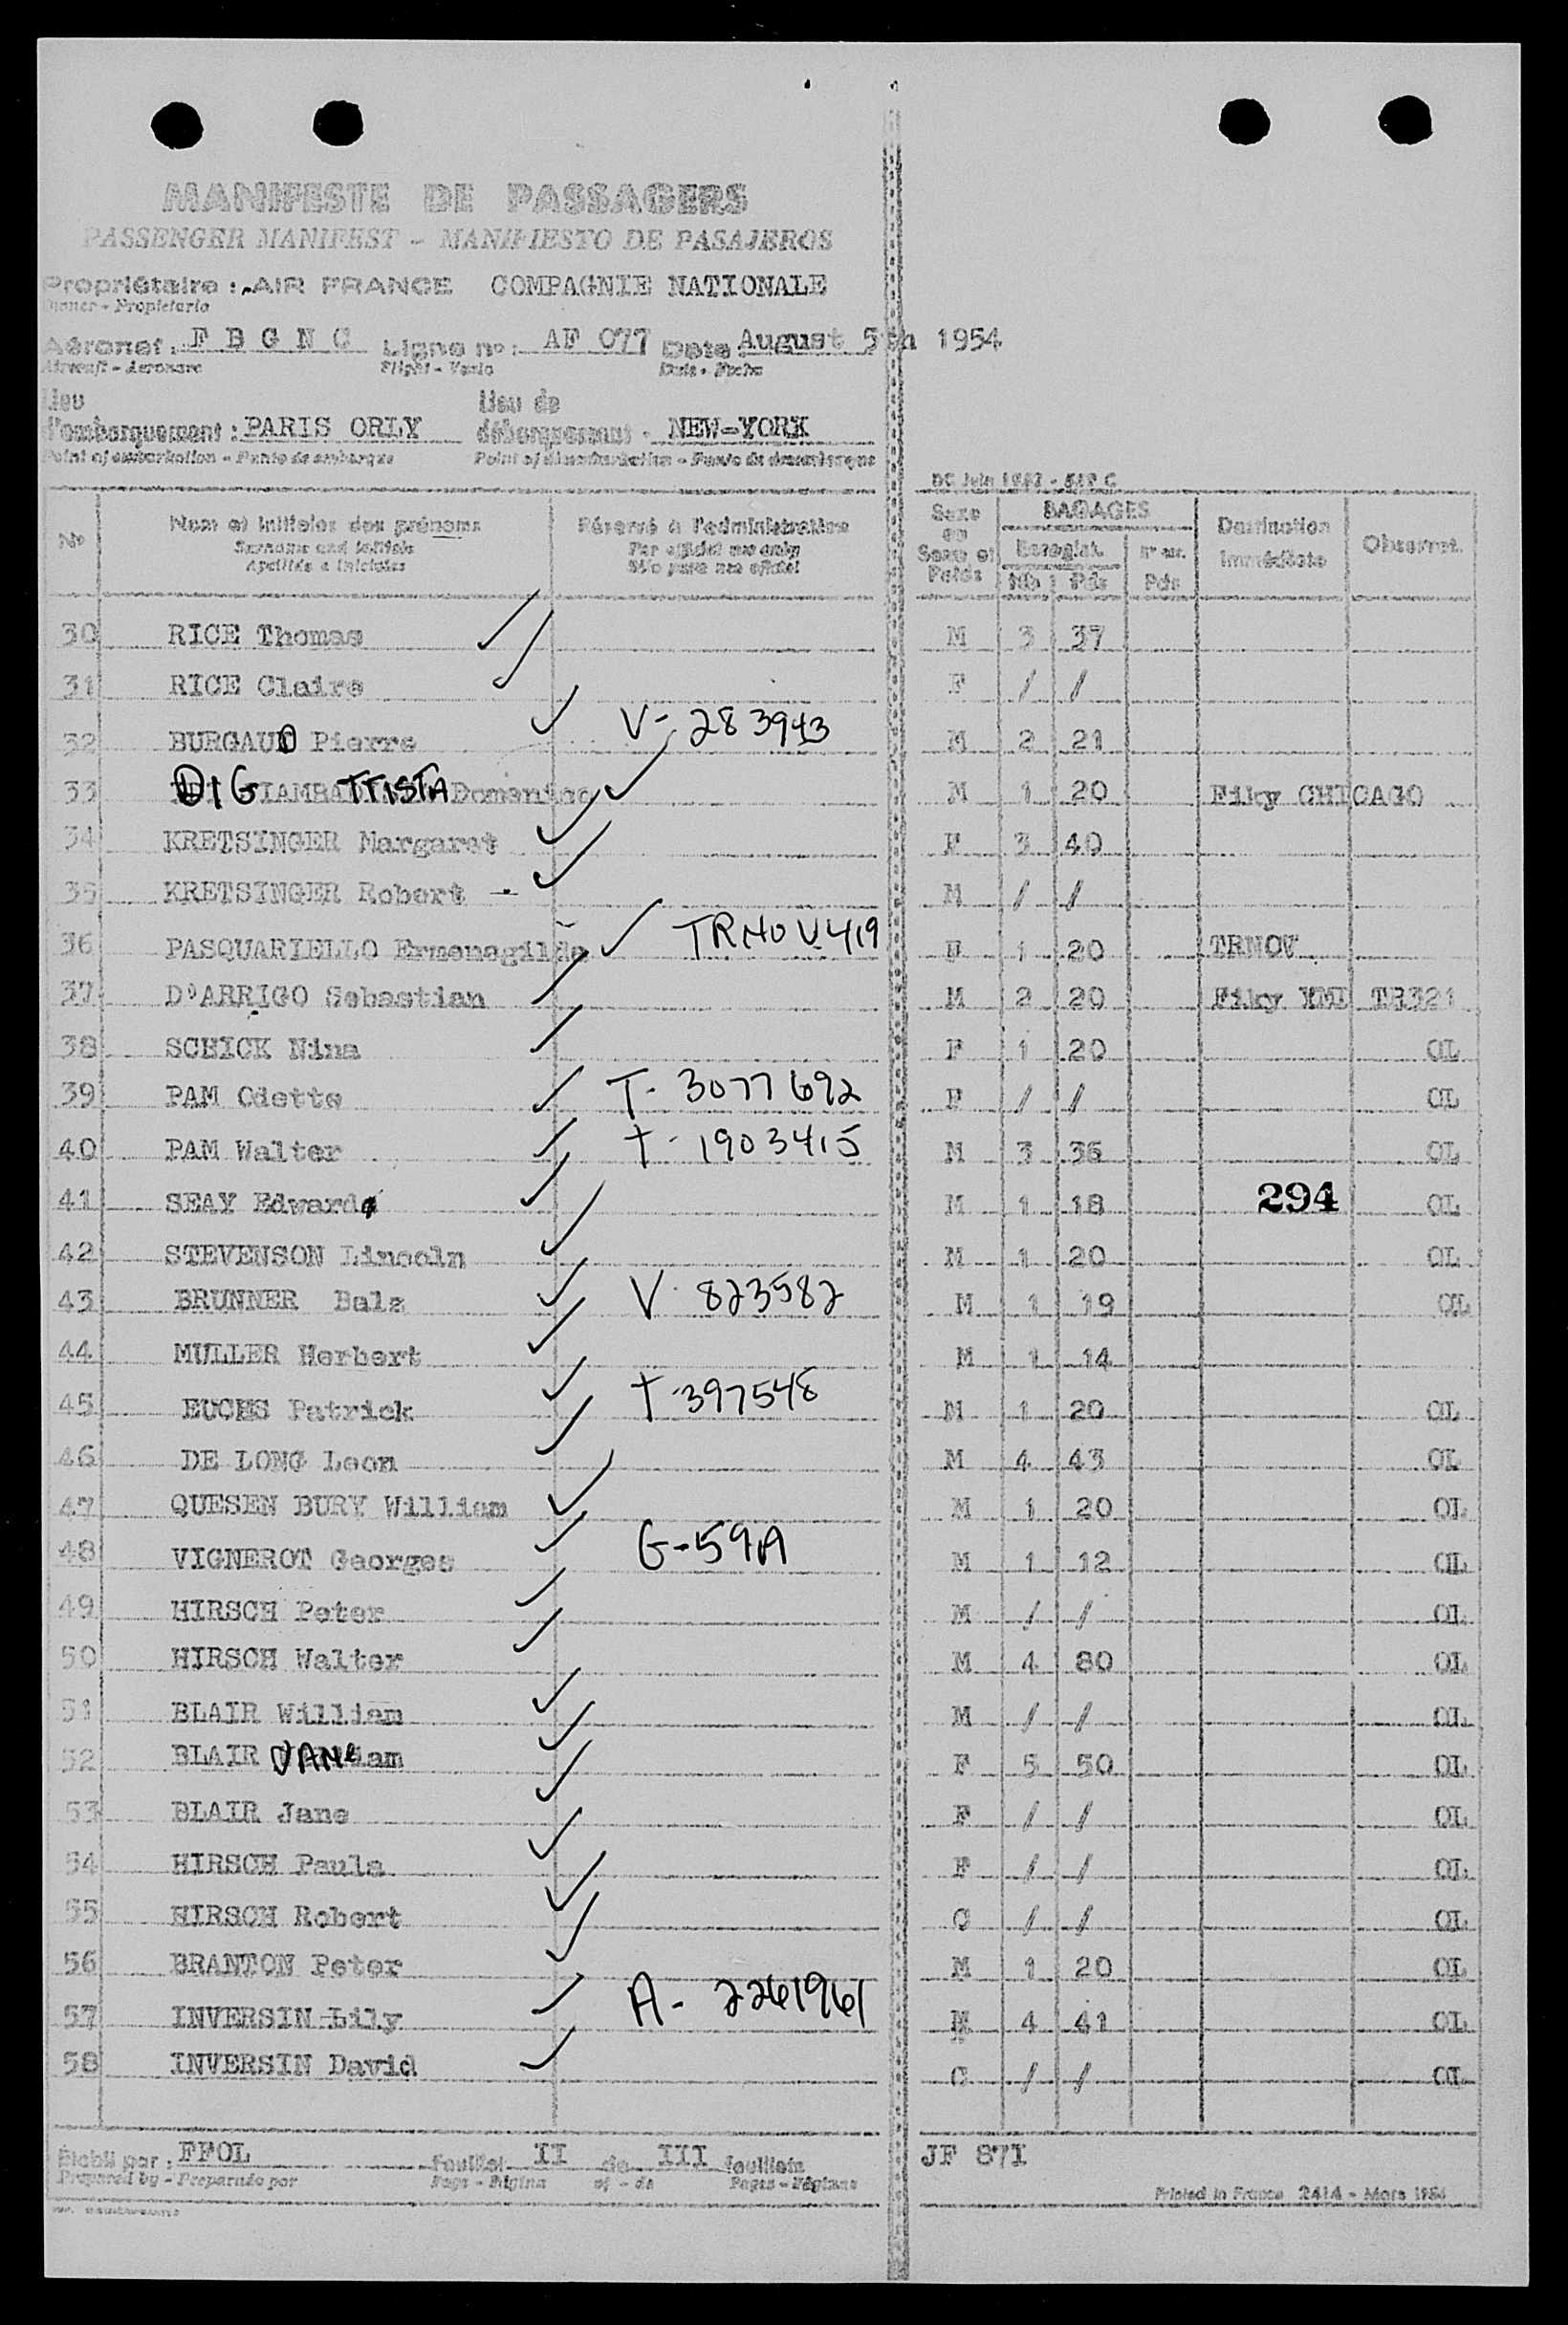 MANIFESTE DE PASSAGERS
PASSENGER MANIFEST - MANIFIESTO DE PASAJEROS
Propriétaire : AIR FRANCE COMPAGNIE NATIONALE
Owner - Propietario
Aéronef : F B G N C Ligne nº : AF 077 Date : August 5th 1954
Aircraft - Aeronave Flight - Vuelo Date - Fecha
Lieu Lieu de
d'embarquement : PARIS ORLY débarquement - NEW-YORK
Point of embarkation - Punto de embarque Point of disembarkation - Punto de desembarque
DC Juin 1953 - 519 C
Nº Nom et initiales des prénoms Réservé à l'administration Sexe ou Sexe et Poids BAGAGES Destination immédiate Observat.
Surname and initials For official use only Enregist. Nb Pds Pds
Apellido e iniciales Sólo para uso oficial
30 RICE Thomas ✓ M 3 37
31 RICE Claire ✓ F / /
32 BURGAUD Pierre ✓ V- 283943 M 2 21
33 DI GIAMBATTISTA Domenico ✓ M 1 20 Fiky CHICAGO
34 KRETSINGER Margaret ✓ F 3 40
35 KRETSINGER Robert - ✓ M / /
36 PASQUARIELLO Ermenegilda ✓ TRNOV 419 F 1 20 TRNOV
37 D'ARRIGO Sebastian ✓ M 2 20 Fiky YMI TR321
38 SCHICK Nina ✓ F 1 20 OL
39 PAM Odette ✓ T- 3077692 F / / OL
40 PAM Walter ✓ T- 1903415 M 3 36 OL
41 SEAY Edward ✓ M 1 18 294 OL
42 STEVENSON Lincoln ✓ M 1 20 OL
43 BRUNNER Balz ✓ V- 823582 M 1 19 OL
44 MULLER Herbert ✓ M 1 14
45 EUCHS Patrick ✓ T-397548 M 1 20 OL
46 DE LONG Leon ✓ M 4 43 OL
47 QUESEN BURY William ✓ M 1 20 OL
48 VIGNEROT Georges ✓ G-59A M 1 12 OL
49 HIRSCH Peter ✓ M / / OL
50 HIRSCH Walter ✓ M 4 80 OL
51 BLAIR William ✓ M / / OL
52 BLAIR JANE ✓ F 5 50 OL
53 BLAIR Jane ✓ F / / OL
54 HIRSCH Paula ✓ F / / OL
55 HIRSCH Robert ✓ C / / OL
56 BRANTON Peter ✓ M 1 20 OL
57 INVERSIN Lily ✓ A- 2261961 M 4 41 OL
58 INVERSIN David ✓ C / / OL
Établi par : FFOL Feuillet II de III feuillets JF 871
Prepared by - Preparado por Page - Página of - de Pages - Páginas
Printed in France 2414 - Mars 1954